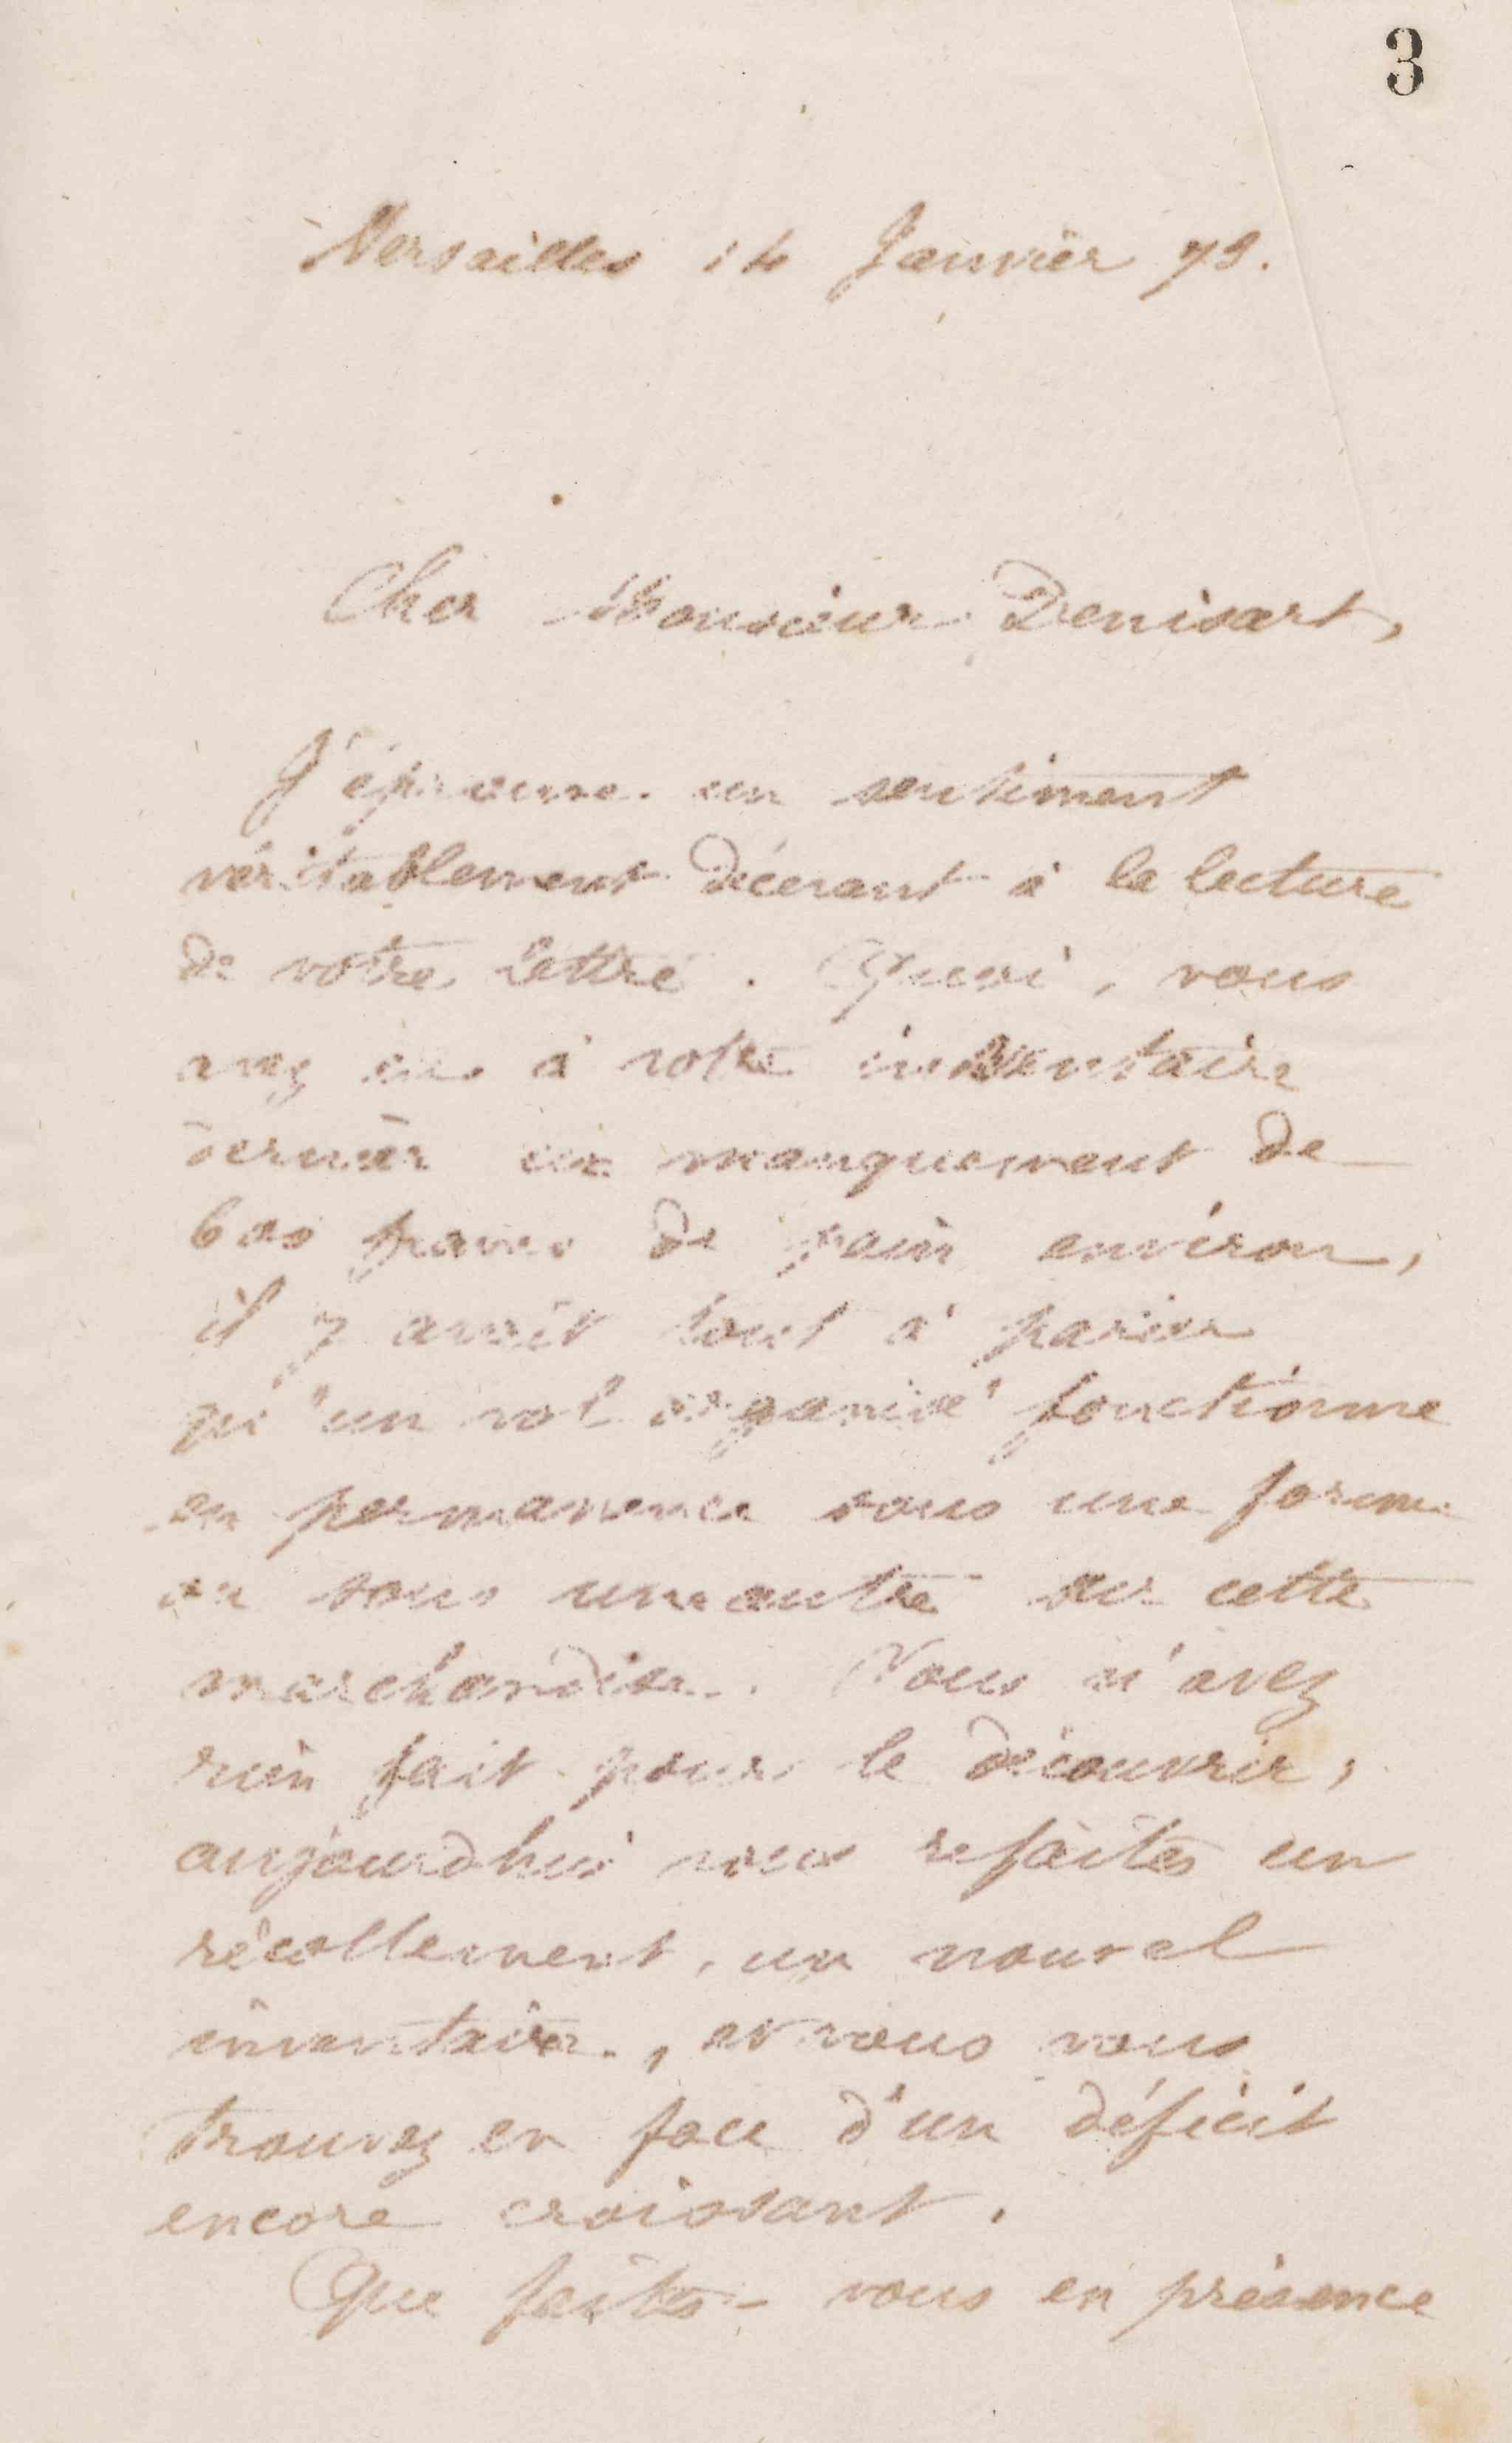 3
Versailles 14 Janvier 79.
Cher Monsieur Denisart,
J'éprouve un sentiment
véritablement à la lecture
de votre lettre. Quoi, vous
avez eu à votre inventaire
dernier un manquement de
600 francs de pain environ,
il y avait tout à parier
qu'un vol organisé fonctionne
en permanence sous une forme
ou sous une autre sur cette
marchandise. Vous n'avez
rien fait pour le découvrir,
aujourd'hui vous refaites un
récollement, un nouvel
inventaire, et vous vous
trouvez en face d'un déficit
encore croissant.
Que faites-vous en présence